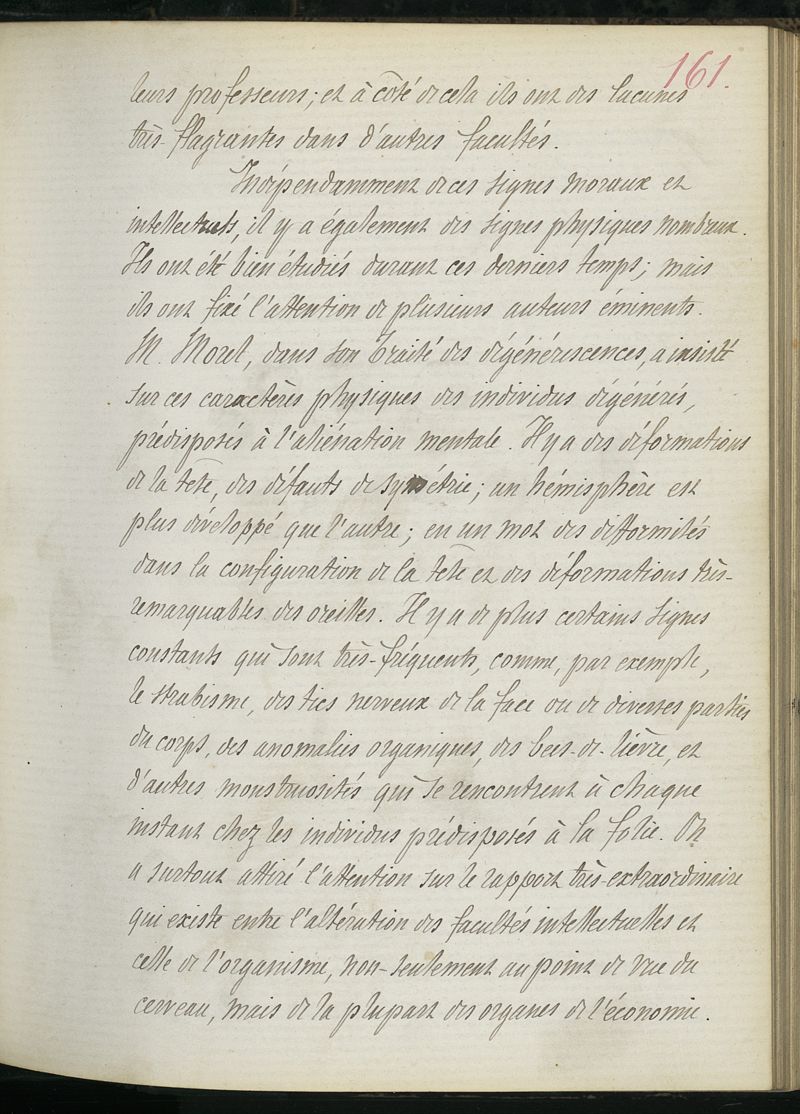 161.
leurs professeurs; et à côté de cela ils ont des lacunes
très-flagrantes dans d'autres facultés.
Indépendamment de ces signes moraux et
intellectuels, il y a également des signes physiques nombreux.
Ils ont été bien étudiés durant ces derniers temps; mais
ils ont fixé l'attention de plusieurs auteurs éminents.
M. Morel, dans son traité des dégénérescences, a insisté
sur ces caractères physiques des individus dégénérés,
prédisposés à l'aliénation mentale. Il y a des déformations
de la tête, des défauts de symétrie; un hémisphère est
plus développé que l'autre; en un mot des difformités
dans la configuration de la tête et des déformations très-
remarquables des oreilles. Il y a de plus certains signes
constants qui sont très-fréquents, comme, par exemple,
le strabisme, des tics nerveux de la face ou de diverses parties
du corps, des anomalies organiques, des becs-de-lièvre, et
d'autres monstruosités qui se rencontrent à chaque
instant chez les individus prédisposés à la folie. On
a surtout attiré l'attention sur le rapport très-extraordinaire
qui existe entre l'altération des facultés intellectuelles et
celle de l'organisme, non-seulement au point de vue du
cerveau, mais de la plupart des organes de l'économie.